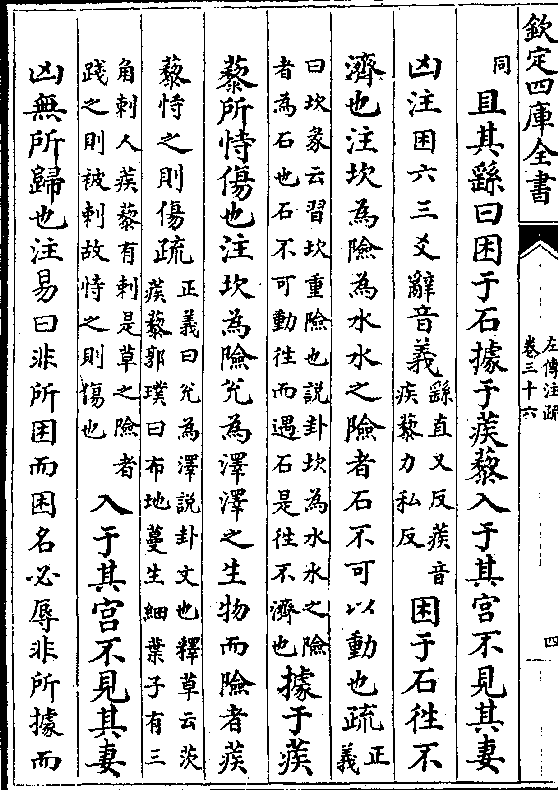 欽定四庫全書
左傳注疏
卷三十六
四
同
且其繇曰困于石據于蒺藜入于其宫不見其妻
凶注困六三爻辭音義
繇直又反蒺音
疾藜力私反
困于石徃不
濟也注坎為險為水水之險者石不可以動也疏
正
義
曰坎彖云習坎重險也説卦坎為水水之險
者為石也石不可動徃而遇石是徃不濟也
據于蒺
藜所恃傷也注坎為險兊為澤澤之生物而險者蒺
藜恃之則傷疏
正義曰兊為澤説卦文也釋草云茨
蒺藜郭璞曰布地蔓生細葉子有三
角刺人蒺藜有刺是草之險者
踐之則被刺故恃之則傷也
入于其宫不見其妻
凶無所歸也注易曰非所困而困名必辱非所據而